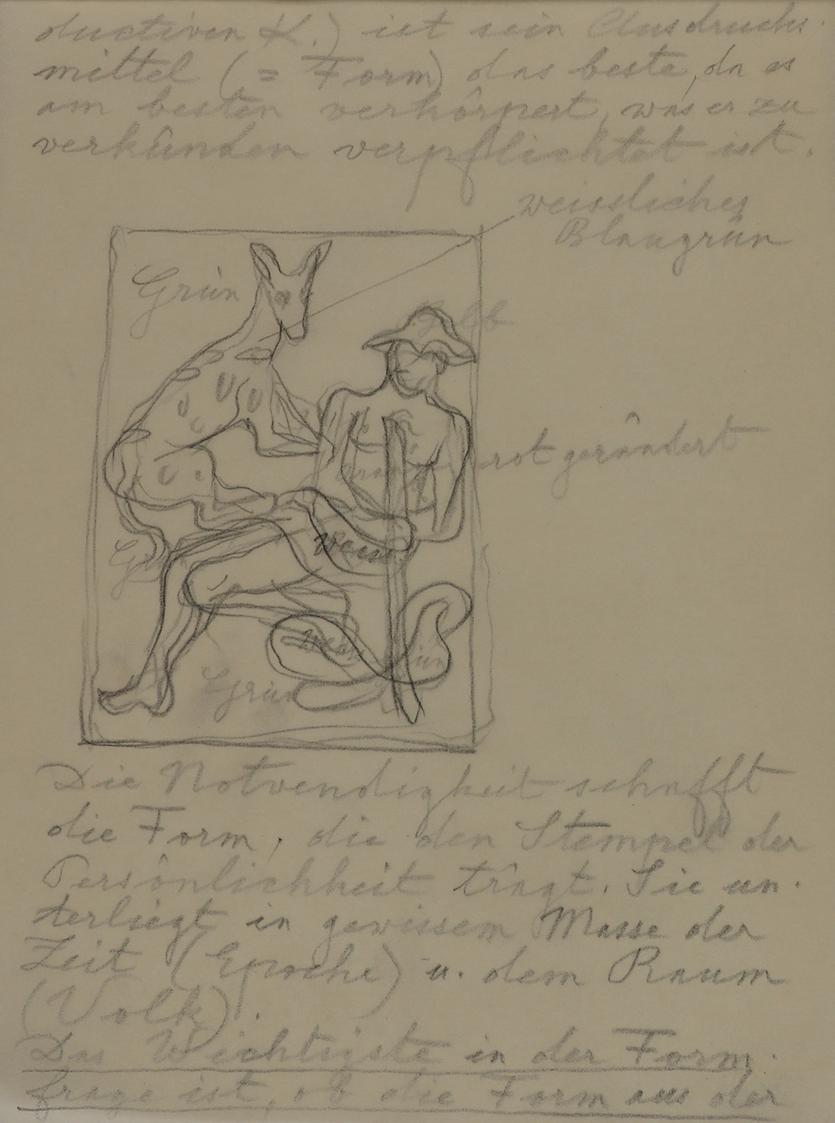 ductiven K.) ist sein Ausdrucks-
mittel (= Form) das beste, da es
am besten verkörpert, was er zu
verkünden verpflichtet ist.
weissliches
Blaugrün
Grün
Gelb
rot gerändert
Weiss
Grün
Die Notvendigkeit schafft
die Form, die den Stempel der
Persönlichkeit trägt. Sie un-
terliegt in gewissem Masse der
Zeit (Epoche) u. dem Raum
(Volk).
Das Wichtigste in der Form-
frage ist, ob die Form aus der